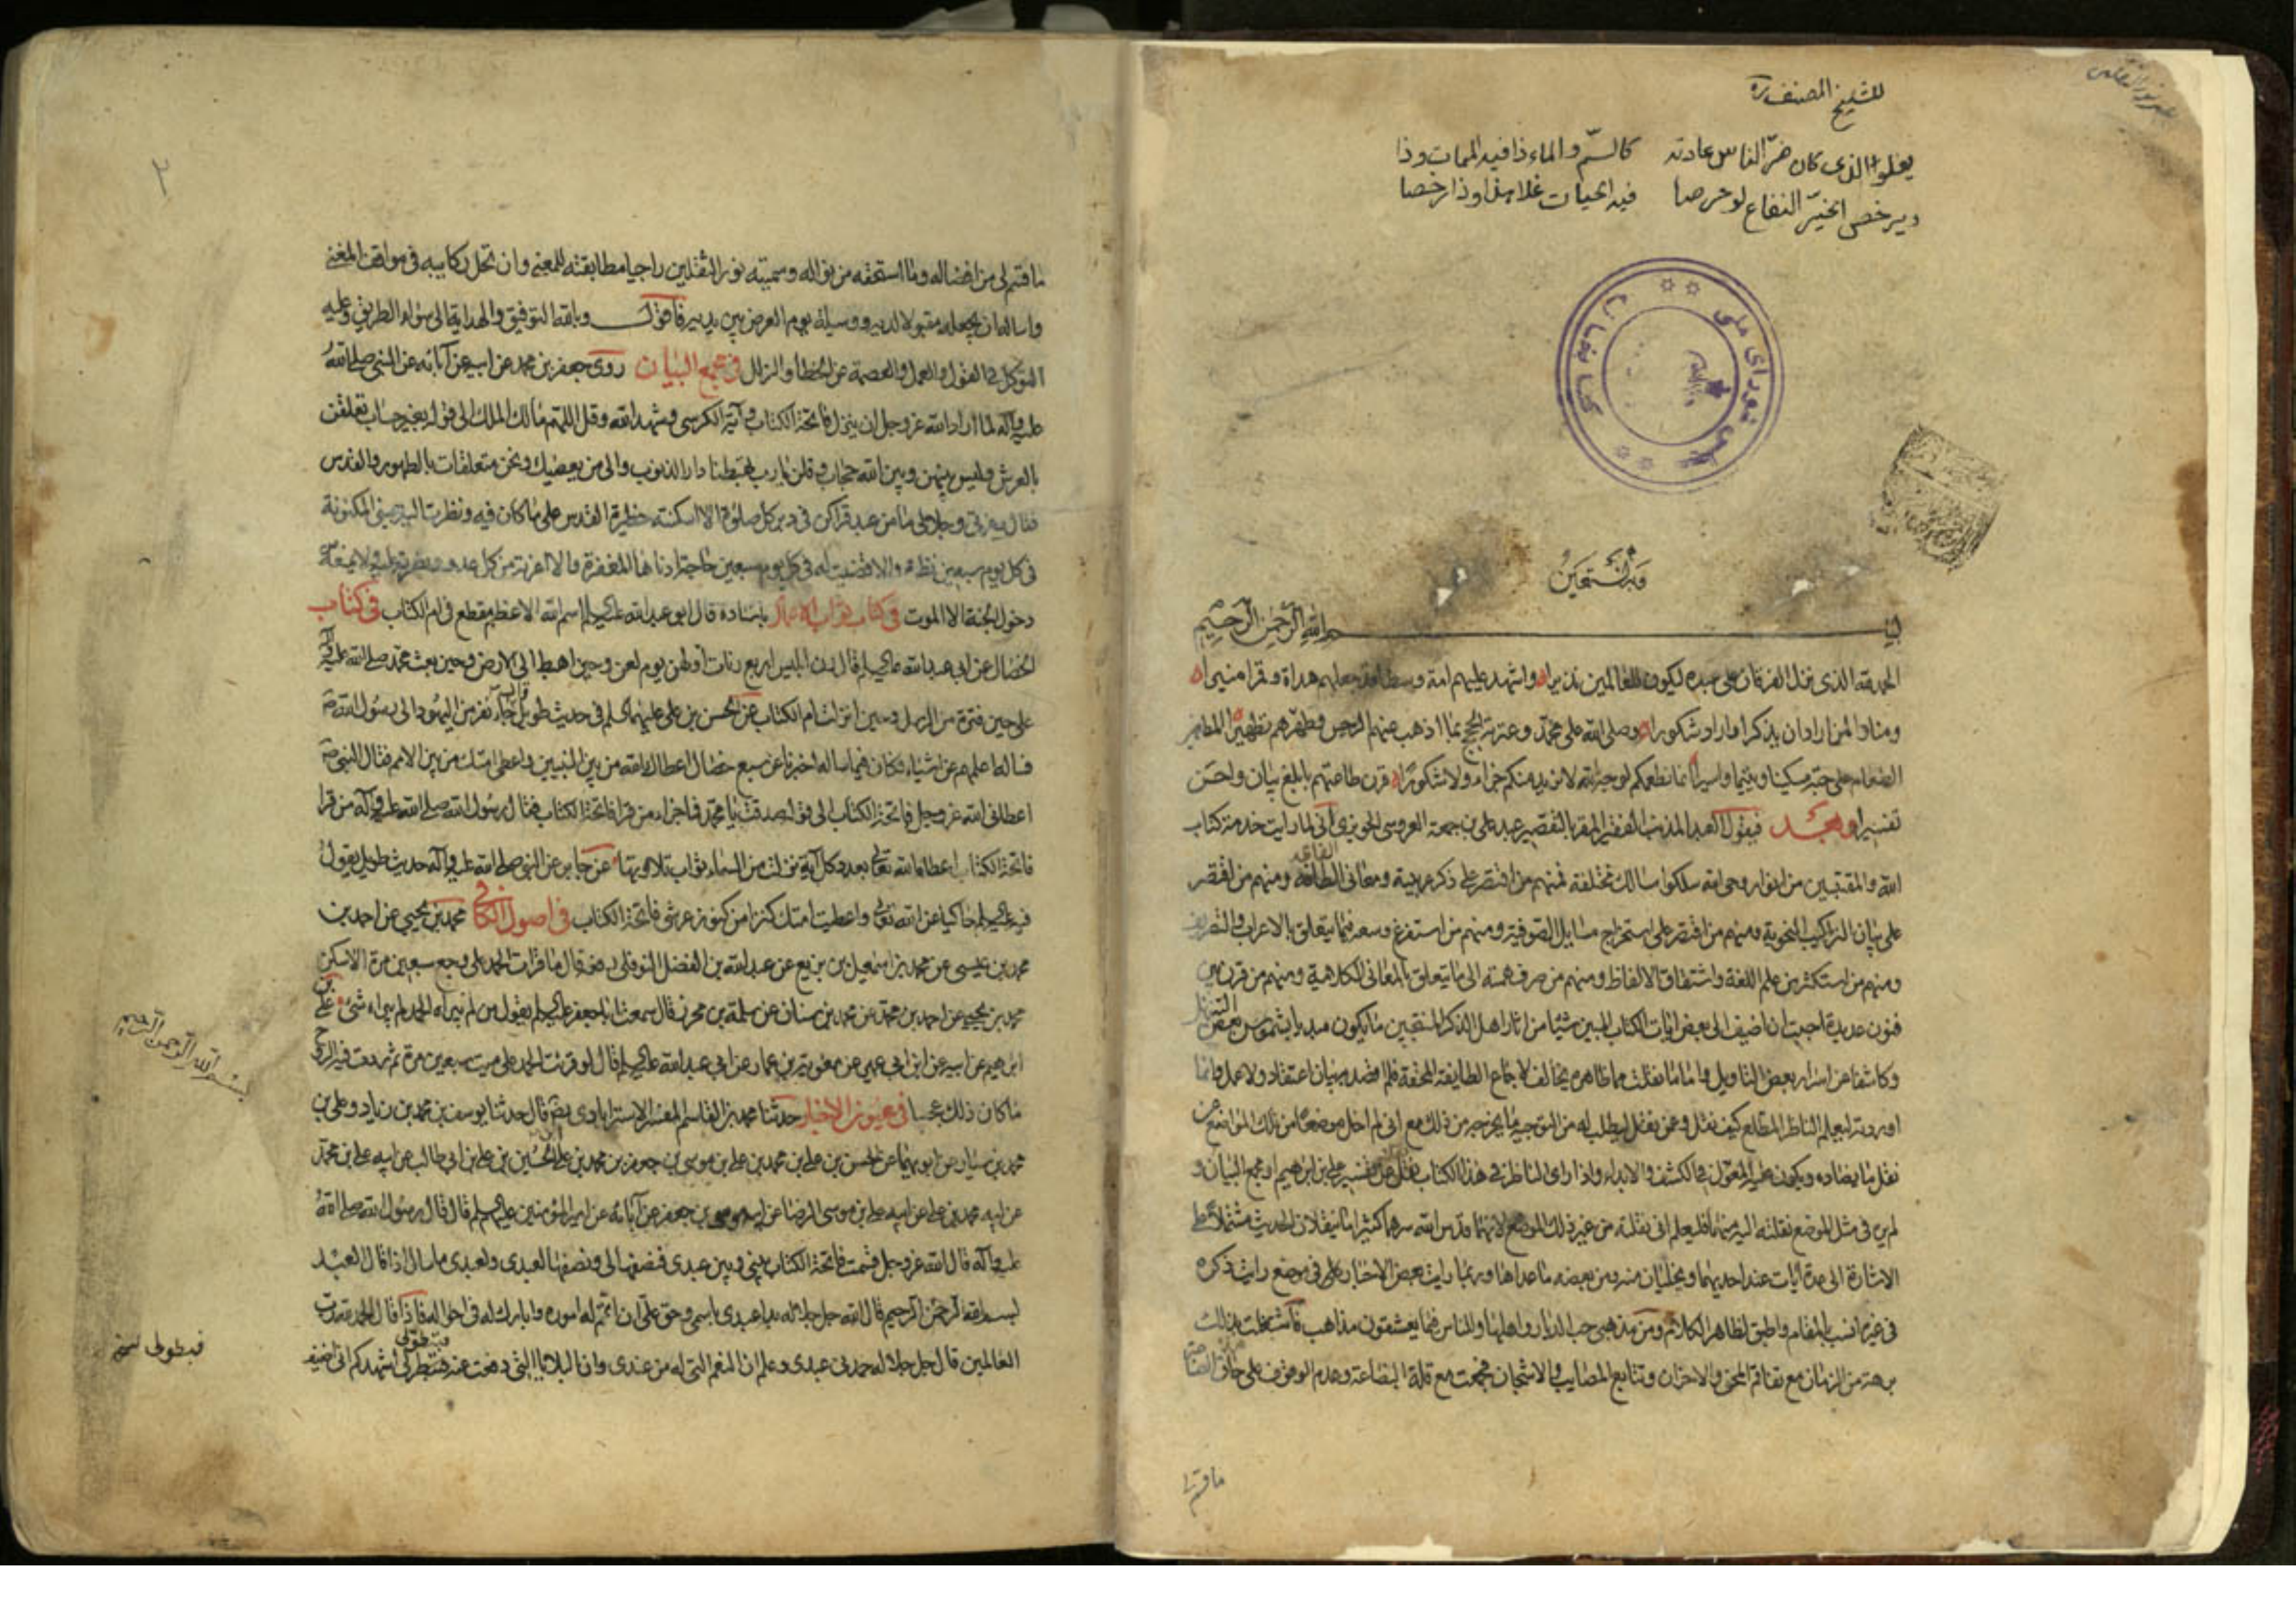 للشيخ المصنف ره
يغلو الذی کان ضرّ الناس عادته کالسمّ والماء ذا فیه الممات وذا
ویرخص الخیّر النفاع لو حرصا فیه الحیات غلا هذا وذا رخصا
کتابخانه مجلس شورای ملی
وبه نستعین
بسم الله الرحمن الرحیم
الحمد لله الذی نزل الفرقان علی عبده لیکون للعالمین نذیرا واشهد علیهم امة وسطا جعلهم هداة وقمرا منیرا
ومنارا لمن اراد ان یذکر او اراد شکورا وصلی الله علی محمد وعترته الحجج بما اذهب عنهم الرجس وطهرهم تطهیرا المطعمین
الطعام علی حبه مسکینا ویتیما واسیرا انما نطعمکم لوجه الله لا نرید منکم جزاء ولا شکورا قرن طاعتهم بابلغ بیان واحسن
تفسیرا وبعد فیقول العبد المذنب الفقیر المقر بالتقصیر عبد علی بن جمعة العروسی الحویزی انی لما رایت خدمة کتاب
الله والمقتبسین من انوار وحی الله سلکوا مسالک مختلفة فمنهم من اقتصر علی ذکر عربیته ومعانی الفاظه ومنهم من اقتصر
علی بیان التراکیب النحویة ومنهم من اقتصر علی استخراج مسایل الصرفیة ومنهم من استفرغ وسعه فیما یتعلق بالاعراب والتصریف
ومنهم من استکثر من علم اللغة واشتقاق الالفاظ ومنهم من صرف همته الی ما یتعلق بالمعانی الکلامیة ومنهم من قرن بین
فنون عدیدة احببت ان اضیف الی بعض ایات الکتاب المبین شیئا من اثار اهل الذکر المنتجبین ما یکون مبدیا بشموس بعض التنزیل
وکاشفا عن اسرار بعض التاویل واما ما نقلت مما ظاهره یخالف لاجماع الطایفة المحقة فلم اقصد به بیان اعتقاد ولا عمل وانما
اوردته لیعلم الناظر المطلع کیف نقل وعمن نقل لیطلب له من التوجیه ما یخرجه من ذلک مع انی لم اخل موضعا من تلک المواضع عن
نقل ما یضاده ویکون علیه المعول فی الکشف والابداء واذا رای الناظر فی هذا الکتاب نقلا عن تفسیر علی بن ابراهیم او مجمع البیان و
لم یر فی مثل الموضع نقلته الیه منهما فلیعلم انی نقلته من غیر ذلک الموضع لانهما قدس الله سرهما کثیرا ما ینقلان الحدیث مشتملا علی
الاشارة الی عدة آیات عند احدیهما ویخلیان منه ومن بعضه ما عداها وربما رایت بعض الاخبار علی فی موضع رایت ذکره
فی غیره انسب بالمقام واطبق لظاهر الکلام ومن مذهبی حب الدیار واهلها وللناس فیما یعشقون مذاهب فاشتغلت بذلک
برهة من الزمان مع تفاقم المحن والاحزان وتتابع المصایب والاشجان فجمعت مع قلة البضاعة وعدم الوقوف علی حاق الصناعة
ما قسم لی
۲
ما قسم لی من افضاله وما استحقه من نواله وسمیته نور الثقلین راجیا مطابقته للمعنی وان تحل رکایبه فی مواقف المغنی
واساله ان یجعله مقبولا لدیه ووسیلة یوم العرض بین یدیه فاقول وبالله التوفیق والهدایة الی سواء الطریق وعلیه
التوکل فی القول والعمل والعصمة عن الخطا والزلل فی مجمع البیان روی جعفر بن محمد عن ابیه عن آبائه عن النبی صلی الله
علیه وآله لما اراد الله عز وجل ان ینزل فاتحة الکتاب وآیة الکرسی وشهد الله وقل اللهم مالک الملک الی قوله بغیر حساب تعلقن
بالعرش ولیس بینهن وبین الله حجاب وقلن یا رب تهبطنا دار الذنوب والی من یعصیک ونحن متعلقات بالطهور والقدس
فقال وعزتی وجلالی ما من عبد قراکن فی دبر کل صلوة الا اسکنته حظیرة القدس علی ما کان فیه ونظرت الیه بعینی المکنونة
فی کل یوم سبعین نظرة والا قضیت له فی کل یوم سبعین حاجة ادناها المغفرة والا اعذته من کل عدو ونصرته علیه ولا یمنعه
دخول الجنة الا الموت فی کتاب ثواب الاعمال باسناده قال ابو عبد الله علیه السلم اسم الله الاعظم مقطع فی ام الکتاب فی کتاب
الخصال عن ابی عبد الله علیه السلم قال رن ابلیس اربع رنات اولهن یوم لعن وحین اهبط الی الارض وحین بعث محمد صلی الله علیه وآله
علی حین فترة من الرسل وحین انزلت ام الکتاب عن الحسن بن علی علیهما السلم فی حدیث طویل قال جاء نفر من الیهود الی رسول الله ص
فساله اعلمهم عن اشیاء فکان فیما ساله اخبرنا عن سبع خصال اعطاک الله من بین النبیین واعطی امتک من بین الامم فقال النبی ص
اعطانی الله عز وجل فاتحة الکتاب الی قوله صدقت یا محمد فما جزاء من قرا فاتحة الکتاب فقال رسول الله صلی الله علیه وآله من قرا
فاتحة الکتاب اعطاه الله تعالی بعدد کل آیة نزلت من السماء ثواب تلاوتها عن جابر عن النبی صلی الله علیه وآله حدیث طویل یقول
فیه علیه السلم حاکیا عن الله تعالی واعطیت امتک کنزا من کنوز عرشی فاتحة الکتاب فی اصول الکافی محمد بن یحیی عن احمد بن
محمد بن عیسی عن محمد بن اسمعیل بن بزیع عن عبد الله بن الفضل النوفلی رفعه قال ما قرات الحمد علی وجع سبعین مرة الا سکن
محمد بن یحیی عن احمد بن محمد عن محمد بن سنان عن سلمة بن محرز قال سمعت ابا جعفر علیه السلم یقول من لم یبراه الحمد لم یبراه شیء علی بن
ابراهیم عن ابیه عن ابن ابی عمیر عن معویة بن عمار عن ابی عبد الله علیه السلم قال لو قرئت الحمد علی میت سبعین مرة ثم ردت فیه الروح
ما کان ذلک عجبا فی عیون الاخبار حدثنا محمد بن القاسم المفسر الاسترابادی رضه قال حدثنا یوسف بن محمد بن زیاد وعلی بن
محمد بن سیار عن ابویهما عن الحسن بن علی بن محمد بن علی بن موسی بن جعفر بن محمد بن علی بن الحسین بن علی بن ابی طالب عن ابیه علی بن محمد
عن ابیه محمد بن علی عن ابیه علی بن موسی الرضا عن ابیه موسی بن جعفر عن آبائه عن امیر المؤمنین علیهم السلم قال قال رسول الله صلی الله
علیه وآله قال الله عز وجل قسمت فاتحة الکتاب بینی وبین عبدی فنصفها لی ونصفها لعبدی ولعبدی ما سال اذا قال العبد
بسم الله الرحمن الرحیم قال الله جل جلاله بدا عبدی باسمی وحق علی ان اتمم له اموره وابارک له فی احواله فاذا قال الحمد لله رب
العالمین قال جل جلاله حمدنی عبدی وعلم ان النعم التی له من عندی وان البلایا التی دفعت عنه فبتطولی اشهدکم انی اضیف
بسم الله الرحمن الرحیم
فبطولی نسخه